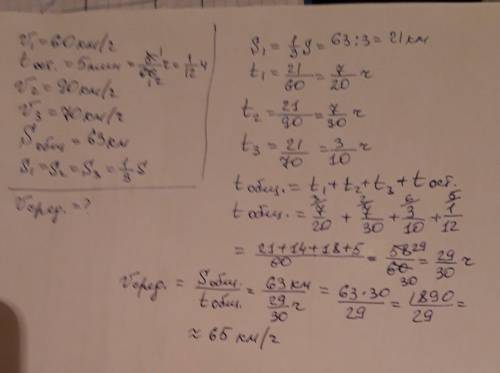 v₁ = 60 км/ч
t ост. = 5 мин = 5/60 ч = 1/12 ч
v₂ = 90 км/ч
v₃ = 70 км/ч
S общ = 63 км
S₁ = S₂ = S₃ = 1/3 S
v сред. = ?
S₁ = 1/3 S = 63 : 3 = 21 км
t₁ = 21/60 = 7/20 ч
t₂ = 21/90 = 7/30 ч
t₃ = 21/70 = 3/10 ч
t общ. = t₁ + t₂ + t₃ + t ост.
t общ. = 7/20 + 7/30 + 3/10 + 1/12
= (21+14+18+5)/60 = 58/60 = 29/30 ч
v сред. = S общ./t общ. = 63 км/(29/30 ч) = 63·30/29 = 1890/29 =
≈ 65 км/ч